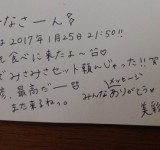 なさーん
は2017年1月25日21:50!!
食べに来たよ〜
でみさみさセット頼んじゃった!!
、最高だー
また来るねっ。
メッセージ
みんなありがとう
美彩